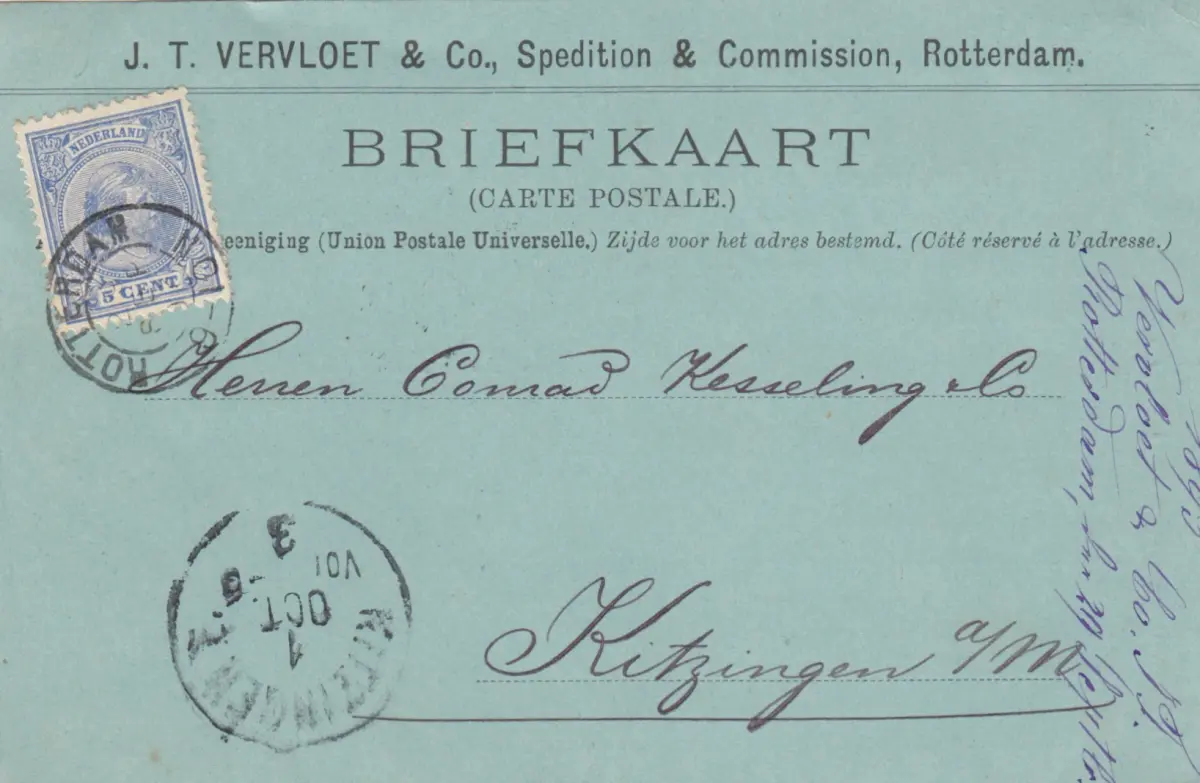 J. T. VERVLOET & Co., Spedition & Commission, Rotterdam.
BRIEFKAART
(CARTE POSTALE.)
eeniging (Union Postale Universelle.) Zijde voor het adres bestemd. (Côté réservé à l'adresse.)
NEDERLAND
5 CENT
ROTTERDAM
Herren Conrad Kesseling & Co
Kitzingen a/M
KITZINGEN
1
OCT
VOI
3
Vervloet & Co.
Rotterdam, den 29